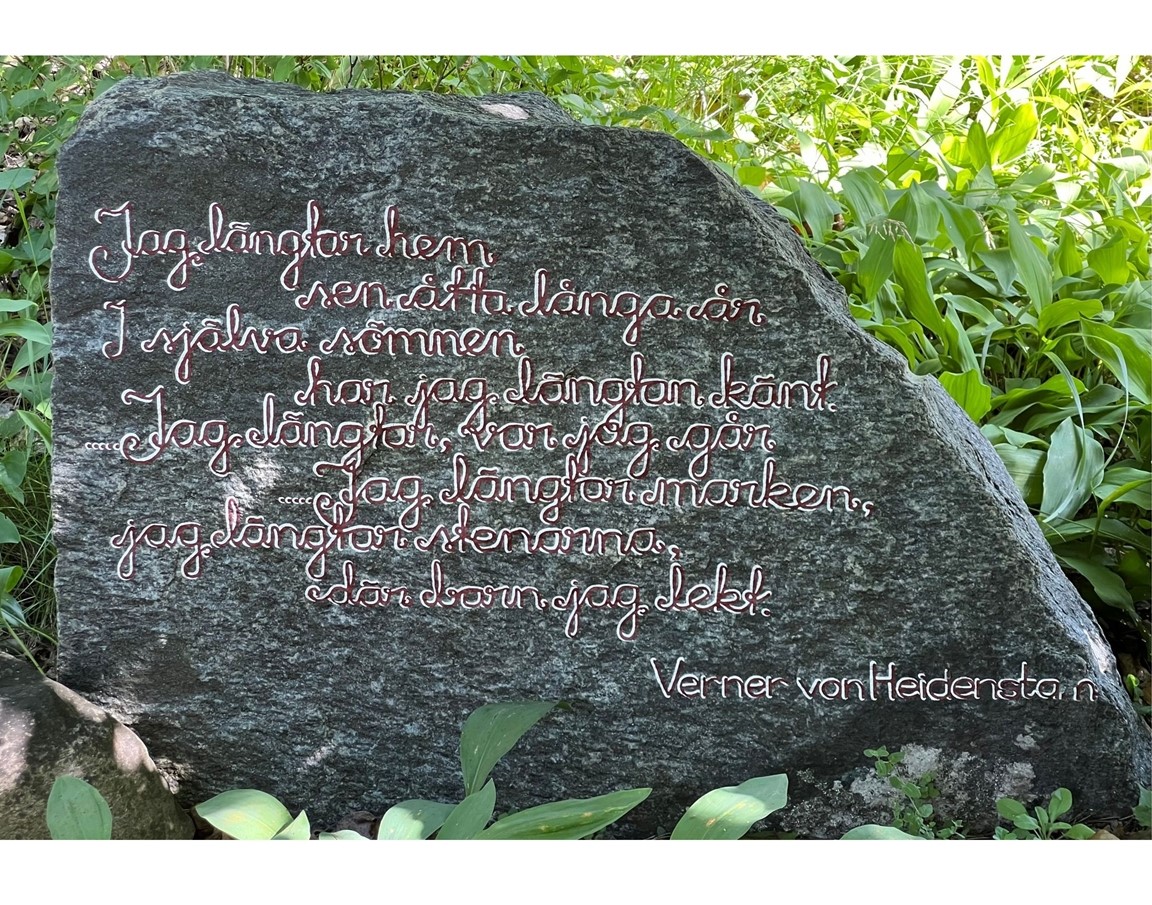 Jag längtar hem
sen åtta långa år
I själva sömnen
har jag längtan känt.
.....Jag längtar, var jag går
.....Jag längtar marken,
jag längtar stenarna,
där barn jag lekt.
Verner von Heidenstam